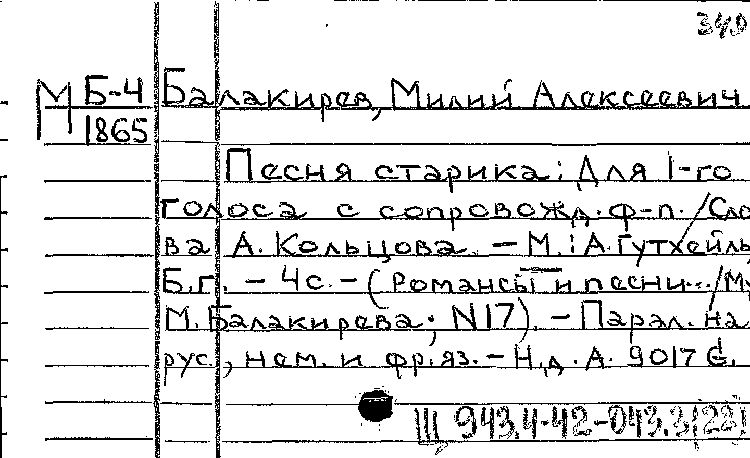 340
М Б-4 Балакирев, Милий Алексеевич
1865
Песня старика: Для 1-го
голоса с сопровожд. ф-п. /Сло
ва А. Кольцова. - М.: А. Гутхейль,
Б.г. - 4с. - (Романсы и песни.../Му
М. Балакирева; N17). - Парал. на
рус., нем. и фр. яз. - Н.д. А. 9017 G.
Щ 943.4-42-043.3(22)